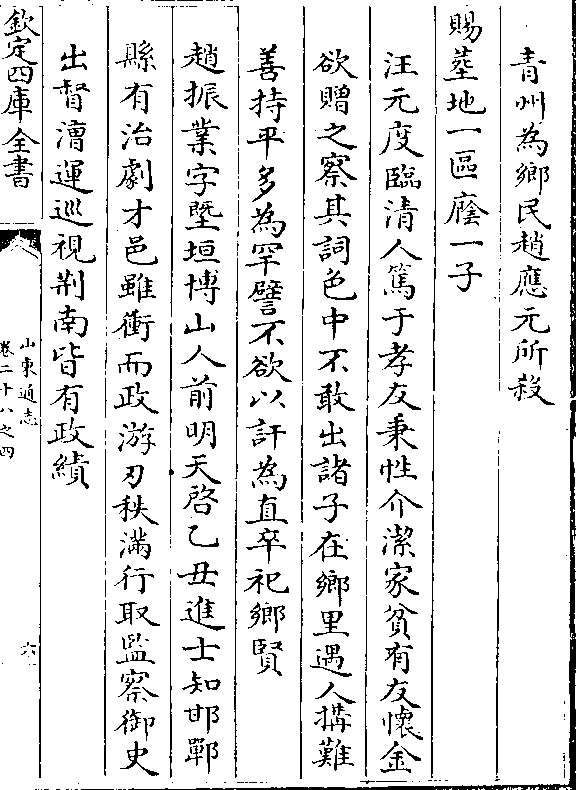 青州為鄉民趙應元所殺
賜塋地一區廕一子
汪元度臨清人篤于孝友秉性介潔家貧有友懷金
欲贈之察其詞色中不敢出諸子在鄉里遇人搆難
善持平多為罕譬不欲以訐為直卒祀鄉賢
趙振業字曁垣博山人前明天啓乙丑進士知邯鄲
縣有治劇才邑雖衝而政游刃秩滿行取監察御史
出督漕運巡視荆南皆有政績
欽定四庫全書
山東通志
卷二十八之四
六